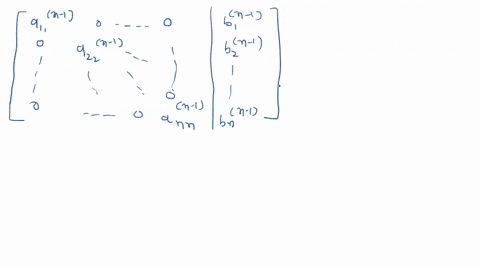 a₁₁⁽ⁿ⁻¹⁾ 0 ---- 0 | b₁⁽ⁿ⁻¹⁾
0 a₂₂⁽ⁿ⁻¹⁾ | b₂⁽ⁿ⁻¹⁾
0
0 --- 0 aₙₙ⁽ⁿ⁻¹⁾ | bₙ⁽ⁿ⁻¹⁾